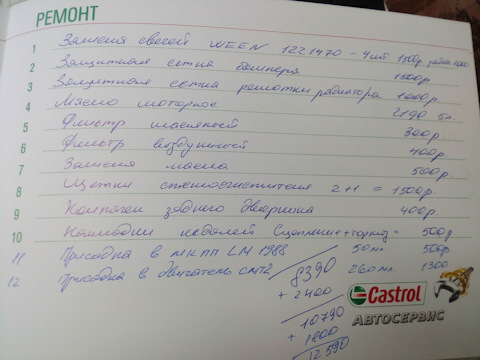 РЕМОНТ
1 Замена свечей WEEN 1221470 - 4 шт. 1500р. работа 1000
2 Защитная сетка бампера 1500р.
3 Защитная сетка решетки радиатора 1000р.
4 Масло моторное 2190 5л.
5 Фильтр масляный 300р.
6 Фильтр воздушный 400р.
7 Замена масла 500р.
8 Щетки стеклоочистителя 2+1 = 1500р.
9 Колпачок заднего дворника 400р.
10 Накладки педалей Сцепление+тормоз = 500р.
11 Присадка в МКПП LM 1988 50мл 500р.
12 Присадка в двигатель 260мл 1300
8390
+ 2400
10790
+ 1800
12590
Castrol
АВТОСЕРВИС